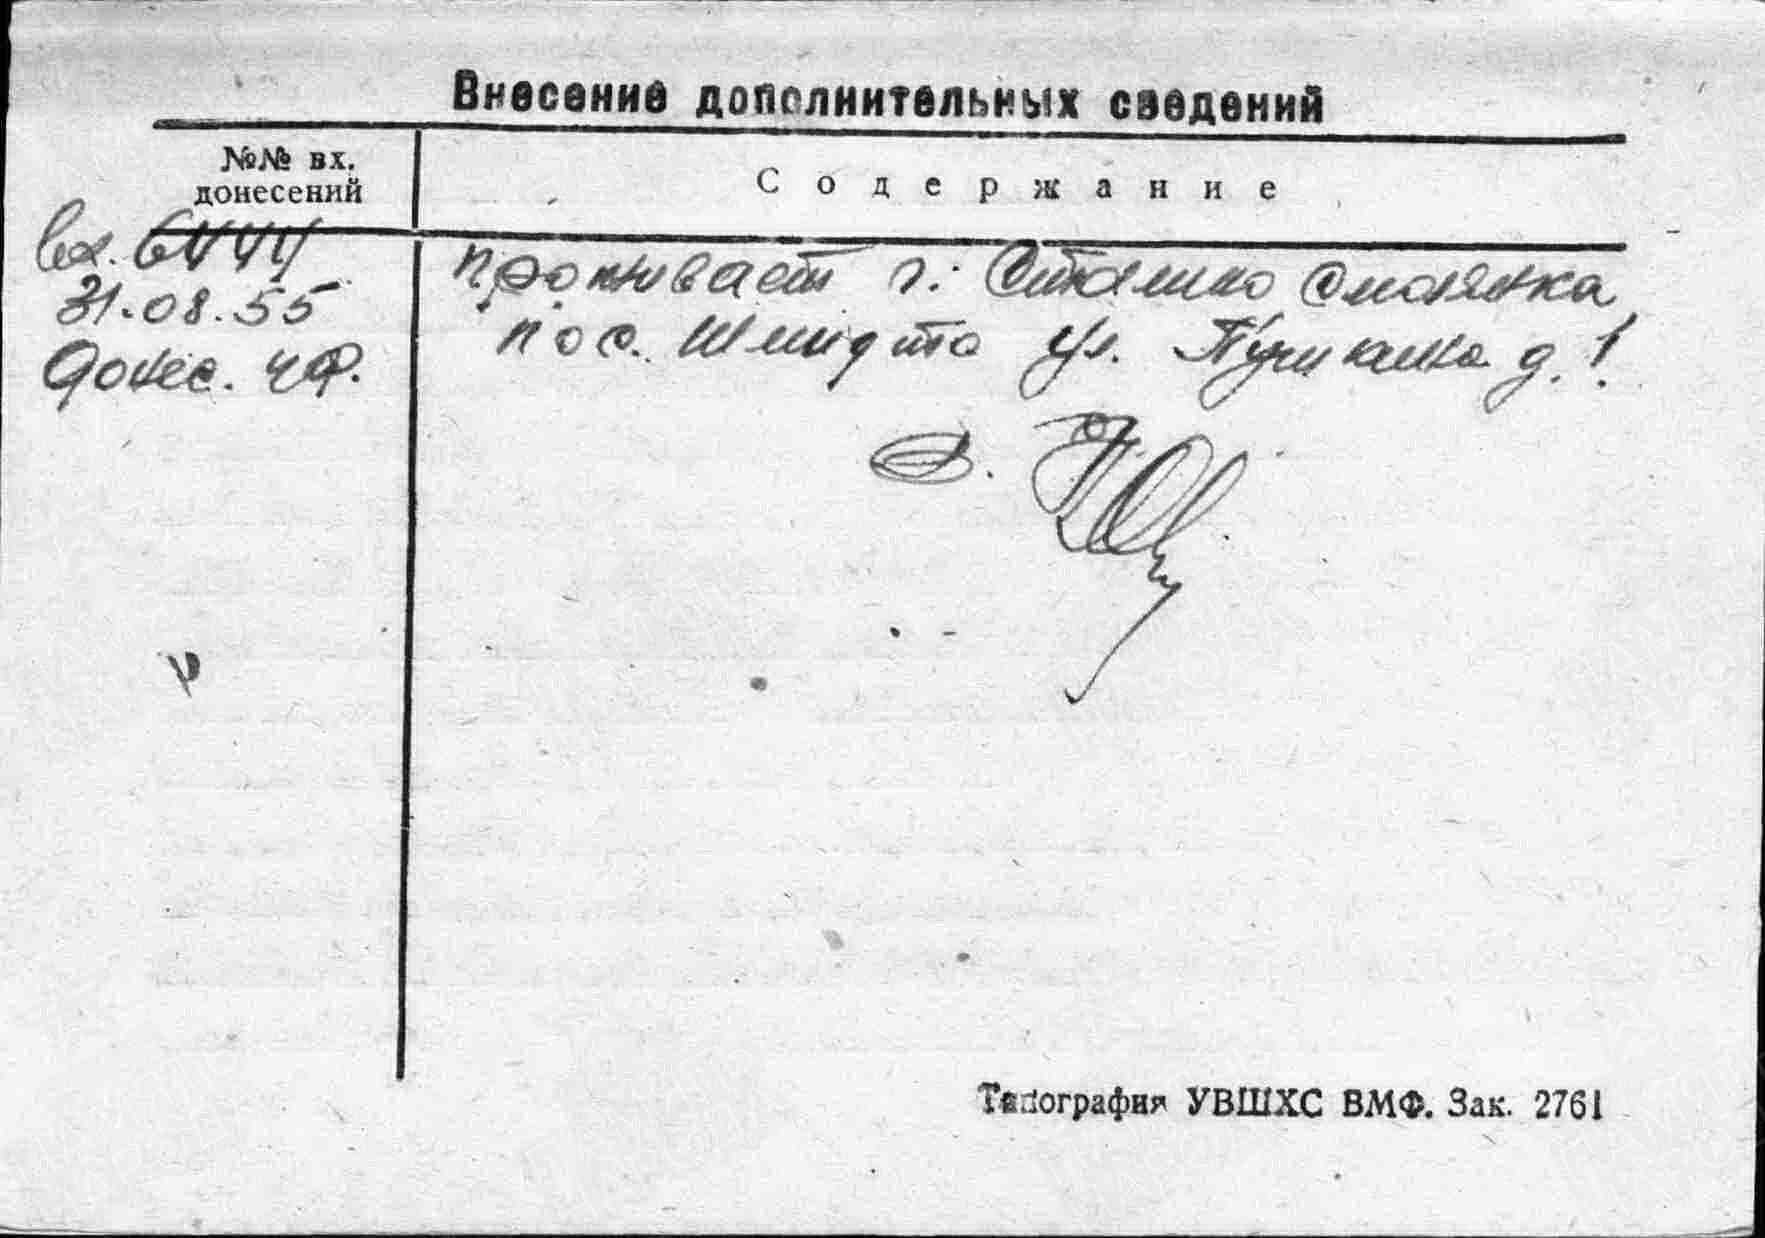 Внесение дополнительных сведений
№№ вх.
донесений
Содержание
Вх.
31.08.55
донес. ЧФ.
проживает г. Сталино Смолянка
пос. Шмидта ул. д. 1
Типография УВШХС ВМФ. Зак. 2761